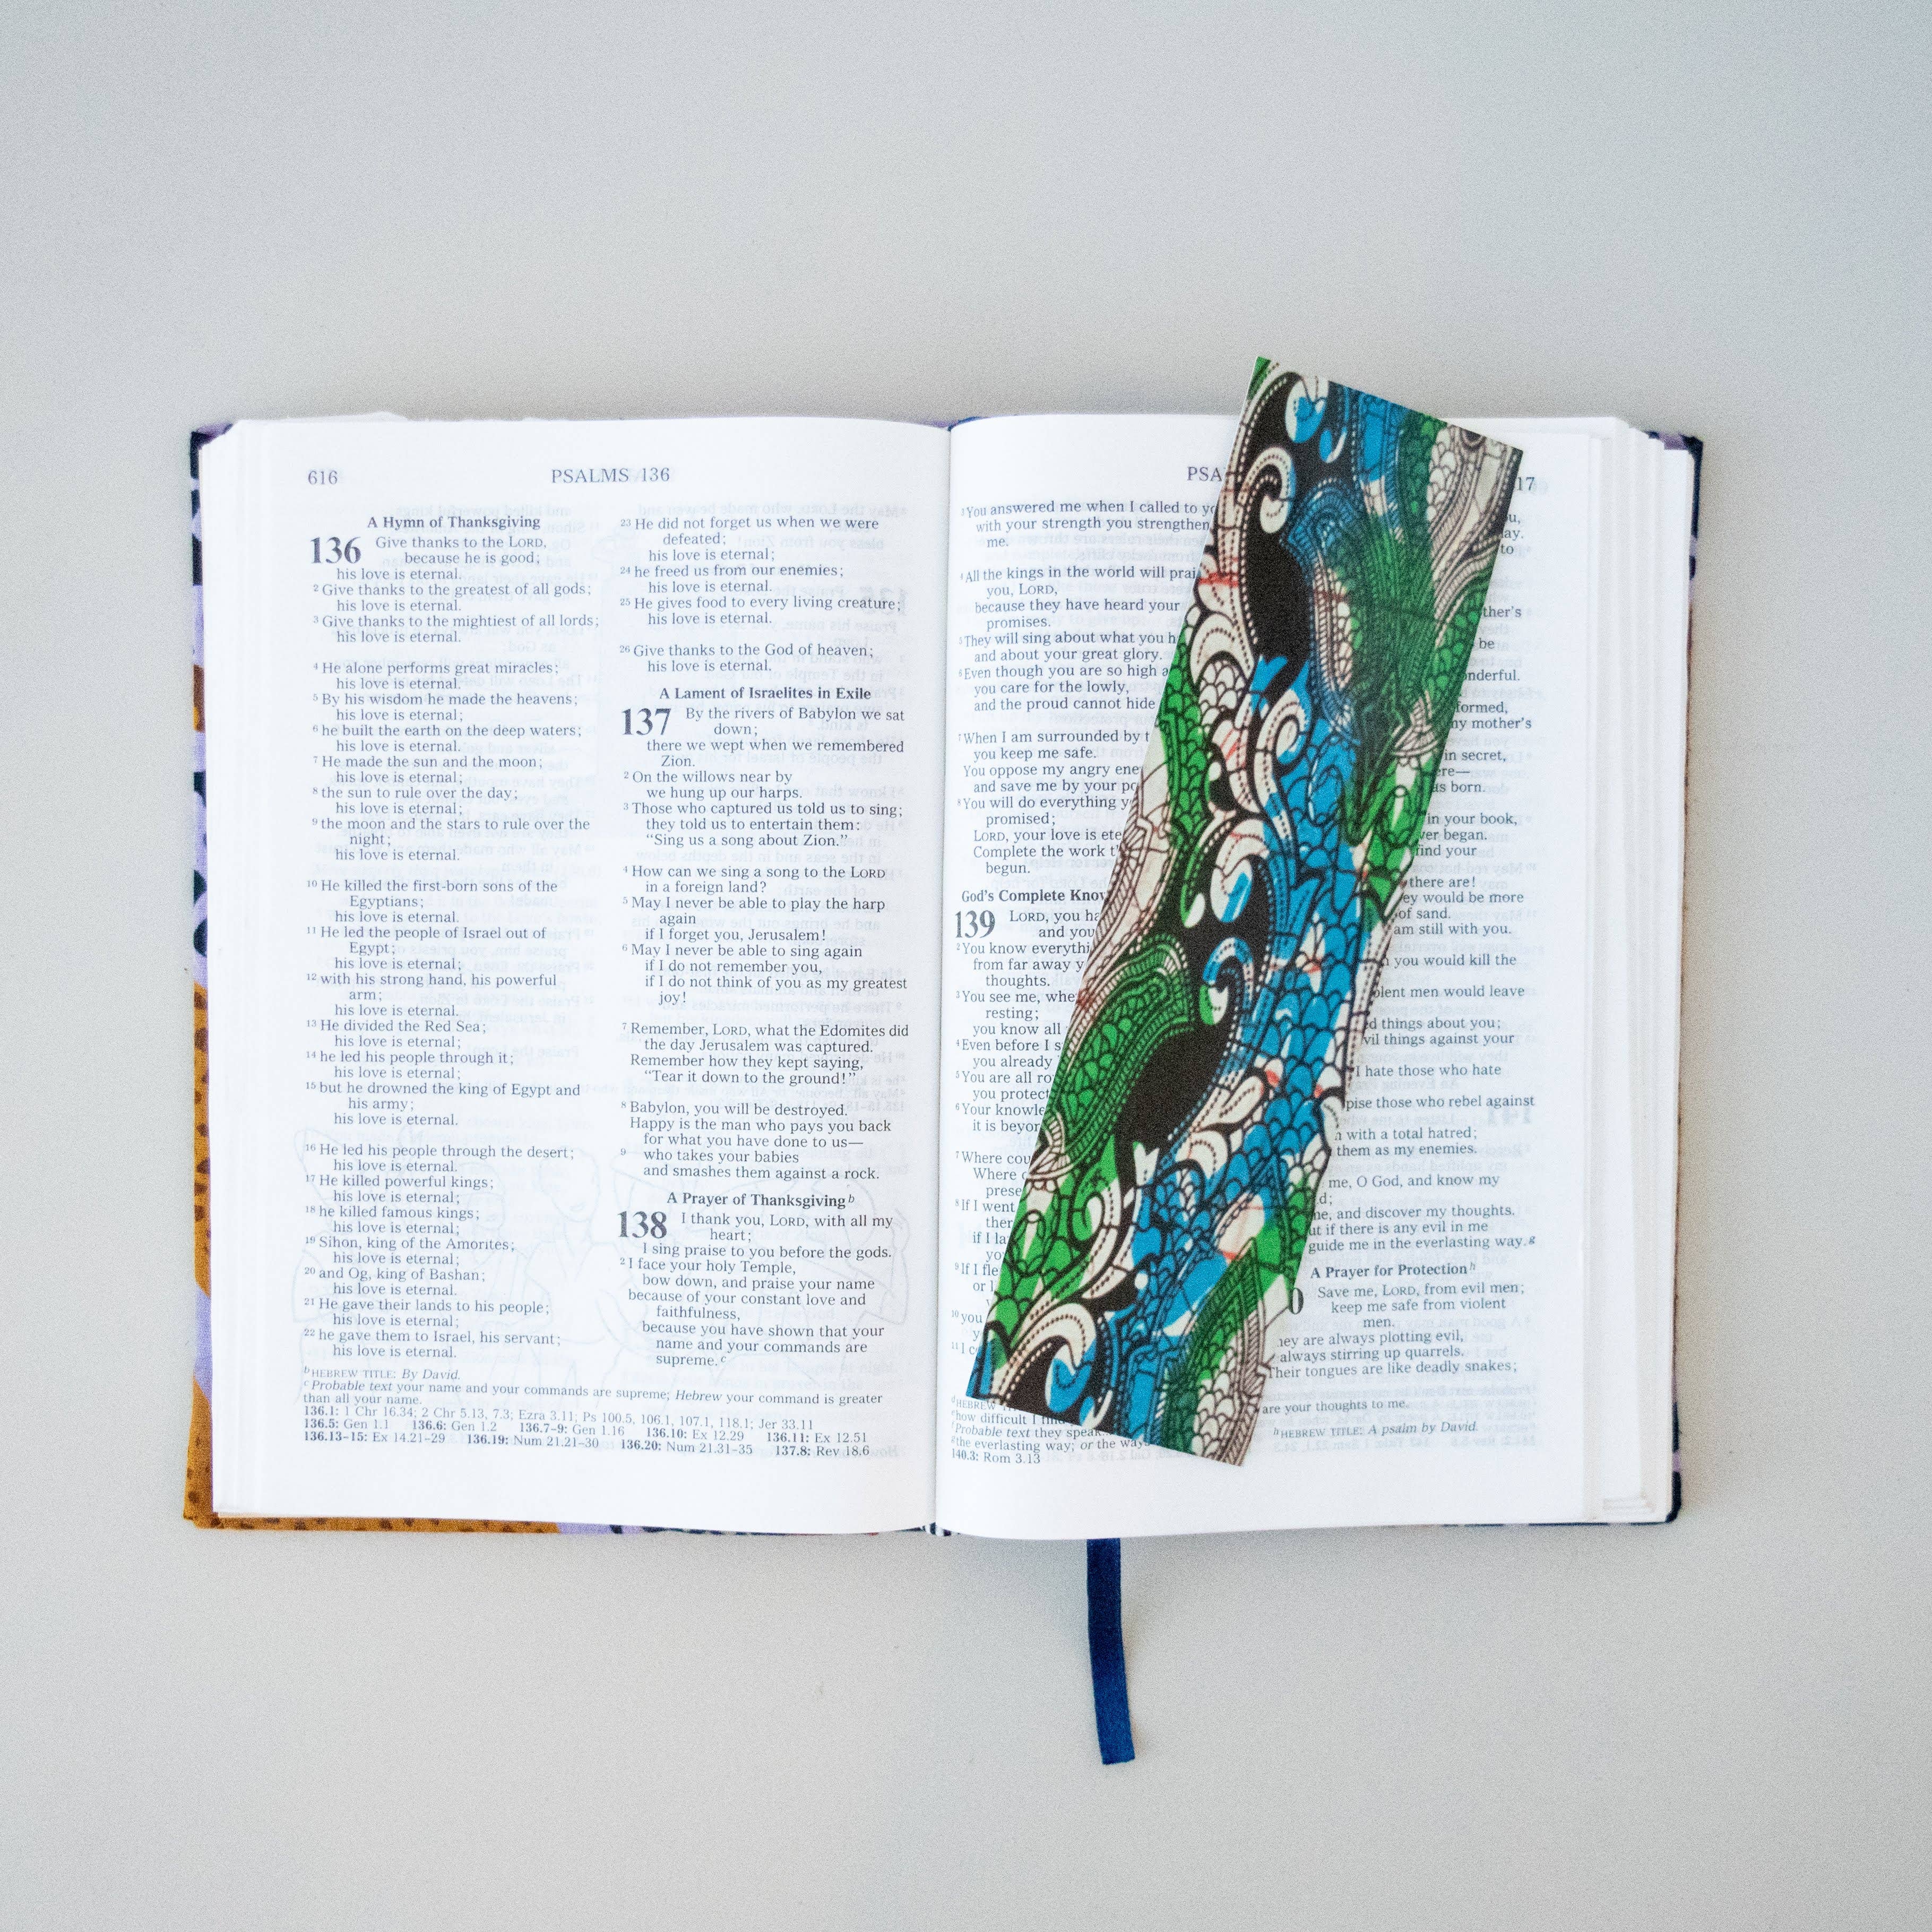 616
PSALMS 136
A Hymn of Thanksgiving
136 Give thanks to the LORD,
because he is good;
his love is eternal.
2 Give thanks to the greatest of all gods;
his love is eternal.
3 Give thanks to the mightiest of all lords;
his love is eternal.
4 He alone performs great miracles;
his love is eternal.
5 By his wisdom he made the heavens;
his love is eternal;
6 he built the earth on the deep waters;
his love is eternal.
7 He made the sun and the moon;
his love is eternal;
8 the sun to rule over the day;
his love is eternal;
9 the moon and the stars to rule over the
night;
his love is eternal.
10 He killed the first-born sons of the
Egyptians;
his love is eternal.
11 He led the people of Israel out of
Egypt;
his love is eternal;
12 with his strong hand, his powerful
arm;
his love is eternal.
13 He divided the Red Sea;
his love is eternal;
14 he led his people through it;
his love is eternal;
15 but he drowned the king of Egypt and
his army;
his love is eternal.
16 He led his people through the desert;
his love is eternal.
17 He killed powerful kings;
his love is eternal;
18 he killed famous kings;
his love is eternal;
19 Sihon, king of the Amorites;
his love is eternal;
20 and Og, king of Bashan;
his love is eternal.
21 He gave their lands to his people;
his love is eternal;
22 he gave them to Israel, his servant;
his love is eternal.
23 He did not forget us when we were
defeated;
his love is eternal;
24 he freed us from our enemies;
his love is eternal.
25 He gives food to every living creature;
his love is eternal.
26 Give thanks to the God of heaven;
his love is eternal.
A Lament of Israelites in Exile
137 By the rivers of Babylon we sat
down;
there we wept when we remembered
Zion.
2 On the willows near by
we hung up our harps.
3 Those who captured us told us to sing;
they told us to entertain them:
“Sing us a song about Zion.”
4 How can we sing a song to the LORD
in a foreign land?
5 May I never be able to play the harp
again
if I forget you, Jerusalem!
6 May I never be able to sing again
if I do not remember you,
if I do not think of you as my greatest
joy!
7 Remember, LORD, what the Edomites did
the day Jerusalem was captured.
Remember how they kept saying,
“Tear it down to the ground!”
8 Babylon, you will be destroyed.
Happy is the man who pays you back
for what you have done to us—
9 who takes your babies
and smashes them against a rock.
A Prayer of Thanksgiving b
138 I thank you, LORD, with all my
heart;
I sing praise to you before the gods.
2 I face your holy Temple,
bow down, and praise your name
because of your constant love and
faithfulness,
because you have shown that your
name and your commands are
supreme. c
b HEBREW TITLE: By David.
c Probable text your name and your commands are supreme; Hebrew your command is greater
than all your name.
136.1: 1 Chr 16.34; 2 Chr 5.13, 7.3; Ezra 3.11; Ps 100.5, 106.1, 107.1, 118.1; Jer 33.11
136.5: Gen 1.1 136.6: Gen 1.2 136.7–9: Gen 1.16 136.10: Ex 12.29 136.11: Ex 12.51
136.13–15: Ex 14.21–29 136.19: Num 21.21–30 136.20: Num 21.31–35 137.8: Rev 18.6
17
3 You answered me when I called to
with your strength you strengthen
me.
4 All the kings in the world will
you, LORD,
because they have heard your
promises.
5 They will sing about what you
and about your great glory.
6 Even though you are so high
you care for the lowly,
and the proud cannot hide
7 When I am surrounded by
you keep me safe.
You oppose my angry
and save me by your
8 You will do everything
promised;
LORD, your love is
Complete the work
begun.
God's Complete
139 LORD, you
and you
2 You know
from far away
thoughts.
3 You see me,
resting;
you know all
4 Even before I
you already
5 You are all
you protect
6 Your
it is
7 Where
Where
8 If I went
if I
9 If I
or
10 you
11 I
how difficult I
Probable text they
the everlasting way; or the
140.3: Rom 3.13
to
be
mother's
in secret,
born.
in your book,
began.
find your
there are!
would be more
of sand.
am still with you.
you would kill the
men would leave
things about you;
things against your
I hate those who hate
those who rebel against
with a total hatred;
them as my enemies.
me, O God, and know my
and discover my thoughts.
if there is any evil in me
guide me in the everlasting way. g
A Prayer for Protection h
Save me, LORD, from evil men;
keep me safe from violent
men.
are always plotting evil,
always stirring up quarrels.
Their tongues are like deadly snakes;
are your thoughts to me.
h HEBREW TITLE: A psalm by David.